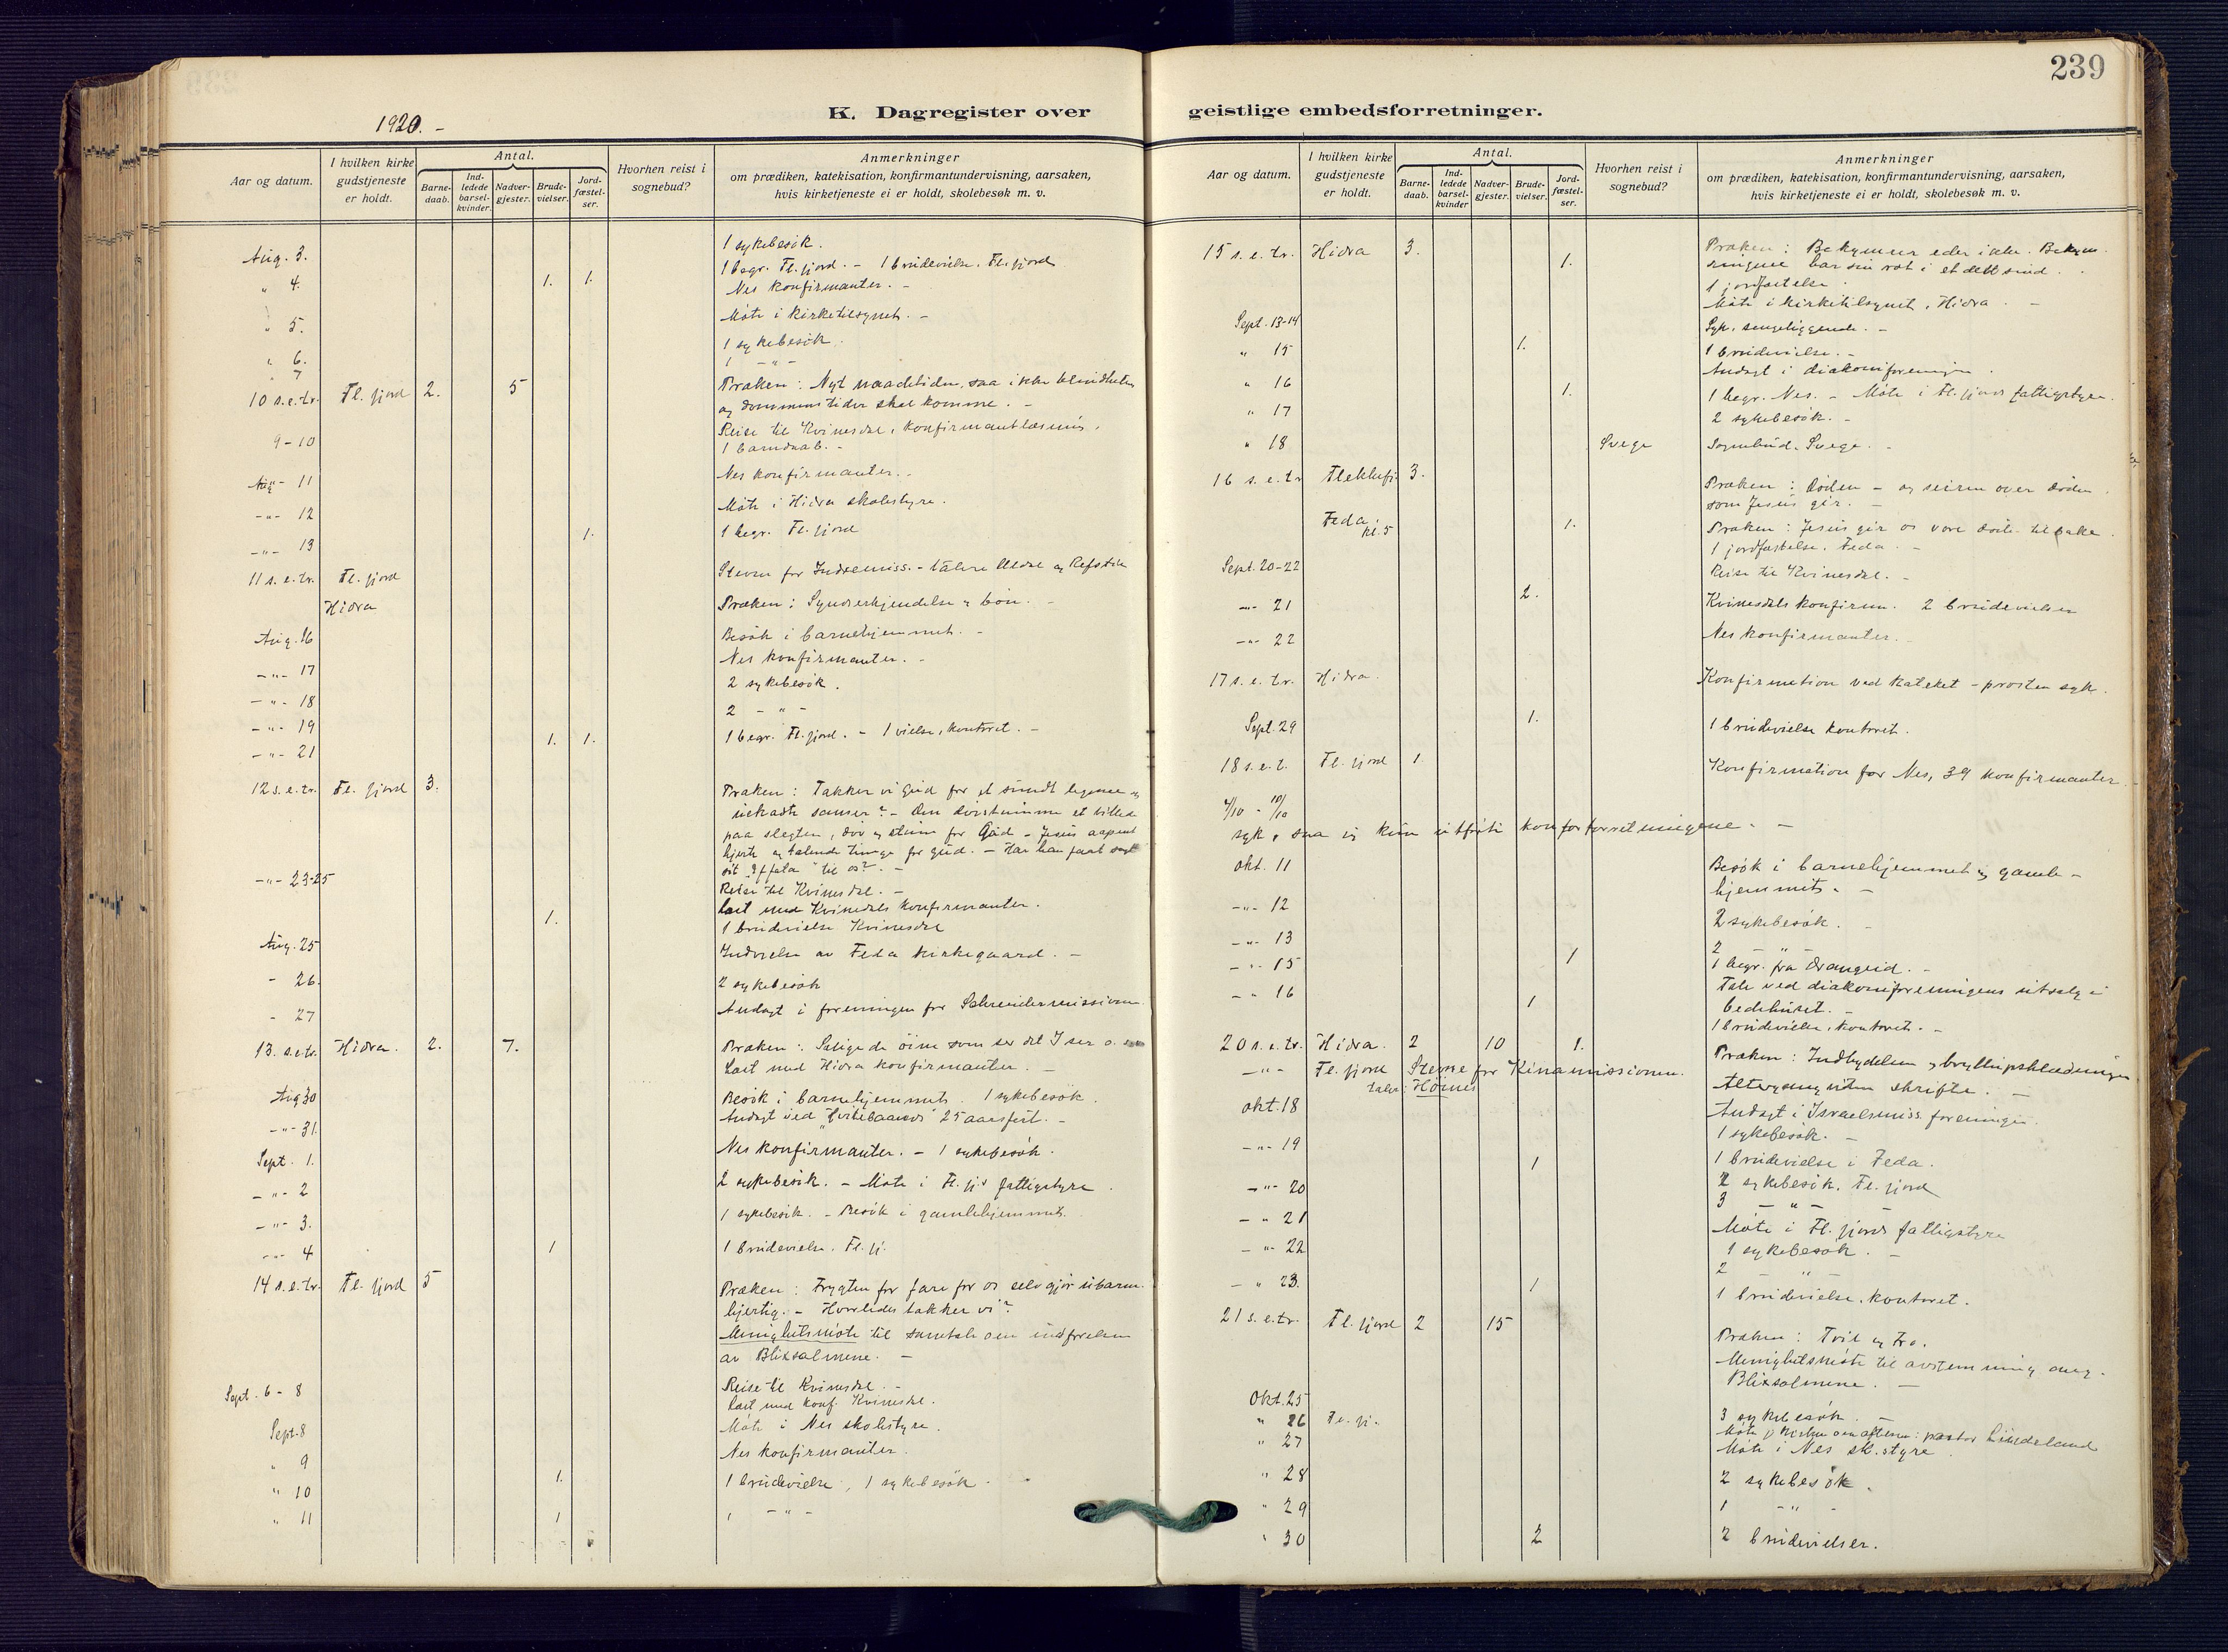 239
K. Dagregister over geistlige embedsforretninger.
1920. -
Aar og datum.
I hvilken kirke gudstjeneste er holdt.
Antal.
Barne-daab.
Ind-ledede barsel-kvinder.
Nadver-gjester.
Brude-vielser.
Jord-fæstel-ser.
Hvorhen reist i sognebud?
Anmerkninger
om prædiken, katekisation, konfirmantundervisning, aarsaken,
hvis kirketjeneste ei er holdt, skolebesøk m. v.
Aug. 3. 1 sykebesøk.
1 begr. Fl.fjord. - 1 brudevielse. Fl.fjord
" 4. 1. 1. Nes konfirmanter. -
" 5. Møte i kirketilsynet. -
" 6. 1 sykebesøk.
" 7 1 - " -
10 s.e.tr. Fl. fjord 2. 5 Præken: Nyt naadetiden, saa ikke blindheten
og dommens tider skal komme. -
9-10 Reise til Kvinesdal, konfirmantlæsning.
1 barndaab. -
Aug - 11 Nes konfirmanter. -
-"- 12 Møte i Hidra skolestyre.
-"- 13 1. 1 begr. Fl. fjord
11 s.e.tr. Fl. fjord Stevne for Indremiss. - talere
Hidra Præken: Synderkjendelse & bøn. -
Aug. 16 Besøk i barnehjemmet. -
-"- 17 Nes konfirmanter. -
-"- 18 2 sykebesøk.
-"- 19 2 - " -
-"- 21 1. 1. 1 begr. Fl. fjord. - 1 vielse, kontoret. -
12 s.e.tr. Fl. fjord 3. Præken: Takker vi Gud for et sundt legeme og
uskadte sanser? - Den døvstumme et billede
paa slegten, døv og stum for Gud - Jesus aapent
hjerte og talende tunge for Gud. - Har han faat sagt
sit "Effata" til os? -
-"- 23-25 Reise til Kvinesdal. -
Læst med Kvinesdals konfirmanter.
1. 1 brudevielse Kvinesdal
Aug. 25 Indvielse av Feda kirkegaard. -
- 26. 2 sykebesøk
- 27 Andagt i foreningen for Schreudermissionen.
13. s.e.tr. Hidra. 2. 7. Præken: Salige de øine som ser det I ser
Læst med Hidra konfirmanter. -
Aug 30 Besøk i barnehjemmet. 1 sykebesøk.
-"- 31. Andagt ved "Hvitebaands" 25 aarsfest. -
Sept. 1. Nes konfirmanter. - 1 sykebesøk.
-"- 2 2 sykebesøk. - Møte i Fl. fj's fattigstyre.
-"- 3. 1 sykebesøk. - Besøk i gamlehjemmet.
-"- 4 1 1 brudevielse. Fl.fj.
14 s.e.tr. Fl. fjord 5 Præken: Frygten for fare for os selv gjør ubarm-
hjertig. - Hvorledes takker vi?
Menighetsmøte til samtale om indførelsen
av Blixsalmene. -
Sept. 6-8 Reise til Kvinesdal. -
Læst med konf. Kvinesdal.
Sept. 8 Møte i Nes skolestyre.
" 9 Nes konfirmanter.
" 10 1. 1 brudevielse, 1 sykebesøk -
" 11 1 - " -
Aar og datum.
I hvilken kirke gudstjeneste er holdt.
Antal.
Barne-daab.
Ind-ledede barsel-kvinder
Nadver-gjester.
Brude-vielser.
Jord-fæstel-ser.
Hvorhen reist i sognebud?
Anmerkninger
om prædiken, katekisation, konfirmantundervisning, aarsaken,
hvis kirketjeneste ei er holdt, skolebesøk m. v.
15 s.e.tr. Hidra 3. 1. Præken: Bekymrer eder ikke. Bekym-
ringene har sin rot i et delt sind.
1 jordfæstelse.
Møte i kirketilsynet, Hidra. -
Sept. 13-14 Syk, sengeliggende. -
" 15 1. 1 brudevielse. -
Andagt i diakoniforeningen.
" 16 1. 1 begr. Nes. - Møte i Fl.fjords fattigstyre.
" 17 2 sykebesøk. -
" 18 Svege Sognebud. Svege. -
16 s.e.tr Flekkefj. 3. Præken: Døden - og seiren over døden
som Jesus gir. -
Feda kl. 5 1. Præken: Jesus gir os vore døde tilbake.
1 jordfæstelse. Feda. -
Sept. 20-22 Reise til Kvinesdal. -
-"- 21 2. Kvinesdals konfirm. 2 brudevielser
-"- 22 Nes konfirmanter. -
17 s.e.tr. Hidra. Konfirmation ved kateket - prosten syk.
Sept. 29 1. 1 brudevielse kontoret.
18 s.e.t. Fl. fjord 1 Konfirmation for Nes, 39 konfirmanter.
4/10 - 10/10
syk, saa jeg kun utførte kontorforretningene. -
Okt. 11 Besøk i barnehjemmet og gamle-
hjemmet. -
-"- 12 2 sykebesøk. -
-"- 13 2 - " -
-"- 15 1 1 begr. fra Drangeid. -
-"- 16 1 Tale ved diakoniforeningens utsalg i
bedehuset. -
1 brudevielse, kontoret. -
20 s.e.tr. Hidra. 2 10 1. Præken: Indbydelsen og bryllupsklædningen
Altergang uten skrifte. -
-"- Fl. fjord Stevne for Kinamissionen.
taler: Höimes
Okt. 18 Andagt i Israelsmiss. foreningen.
-"- 19 1 sykebesøk. -
1 1 brudevielse i Feda.
-"- 20 2 sykebesøk. Fl. fjord
-"- 21 3 - " -
Møte i Fl. fjords fattigstyre
-"- 22 1 sykebesøk. -
-"- 23. 1 2 - " -
1 brudevielse, kontoret.
21 s.e.tr. Fl. fjord 2 15 Præken: Tvil og Tro.
Menighetsmøte til avstemning ang.
Blixsalmene. -
Okt. 25 3 sykebesøk. -
" 26 Fl. fj. Møte i kirken om aftenen: pastor Lindeland
" 27 Møte i Nes sk.styre.
" 28 2 sykebesøk.
" 29 1 - " -
" 30 2 2 brudevielser.